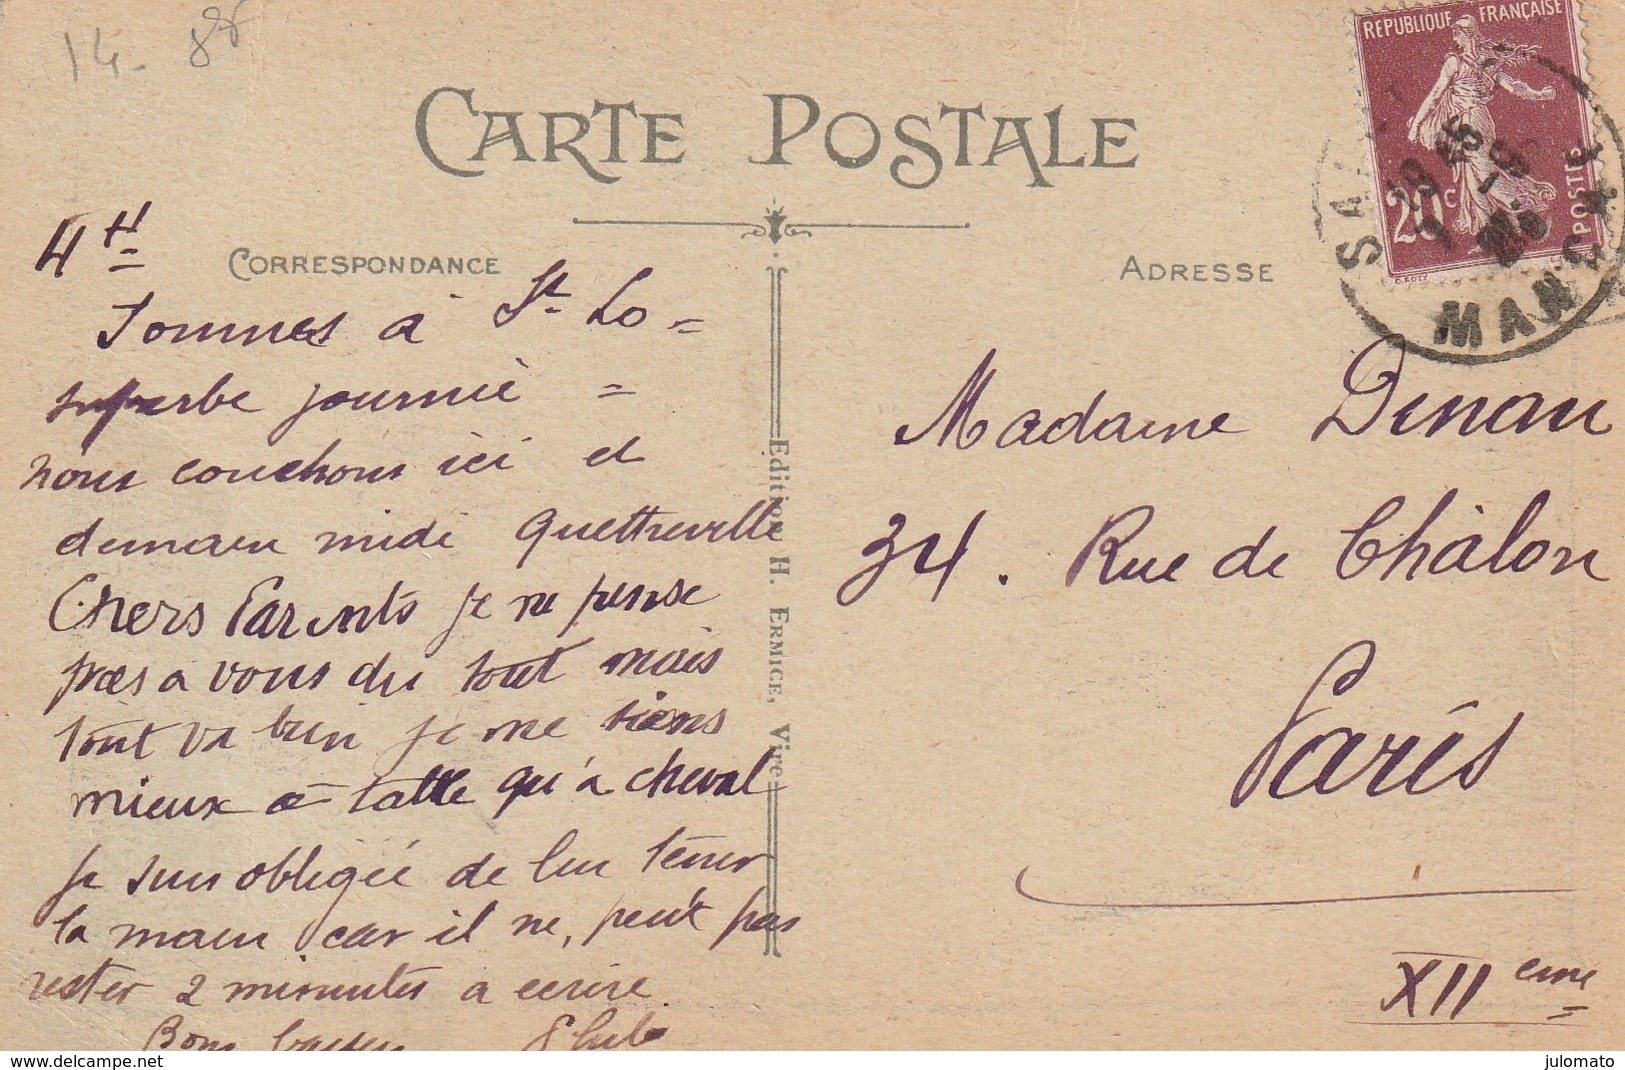 14. 88
CARTE POSTALE
4 H
CORRESPONDANCE
Sommes à St Lo =
superbe journée =
nous couchons ici et
demain midi Quettreville
Chers Parents je ne pense
pas a vous du tout mais
tout va bien je me tiens
mieux a table qu'a cheval
je suis obligée de lui tenir
la main car il ne, peut pas
rester 2 minutes a ecrire.
Bons baisers
Edition H. ERMICE, Vire
ADRESSE
REPUBLIQUE FRANÇAISE
20c
POSTE
MANCHE
Madame Dinan
34. Rue de Châlon
Paris
XII eme
www.delcampe.net
julomato